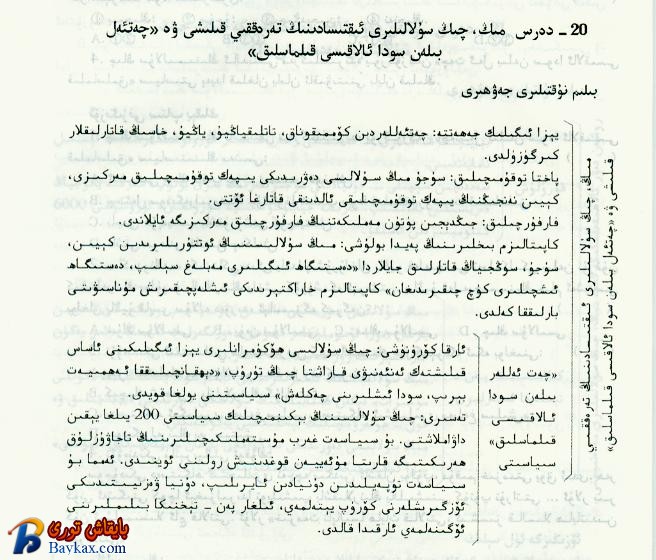 20 ـ دەرس مىڭ، چىڭ سۇلالىلىرى ئىقتىسادىنىڭ تەرەققىي قىلىشى ۋە «چەتئەل
بىلەن سودا ئالاقىسى قىلماسلىق»
بىلىم نۇقتىلىرى جەۋھىرى
مىڭ، چىڭ سۇلالىلىرى ئىقتىسادىنىڭ تەرەققىي
قىلىشى ۋە «چەتئەل بىلەن سودا ئالاقىسى قىلماسلىق»
يېزا ئىگىلىك جەھەتتە: چەتئەللەردىن كۆممىقوناق، تاتلىقياڭيۇ، ياڭيۇ، خاسىڭ قاتارلىقلار
كىرگۈزۈلدى.
پاختا توقۇمىچىلىق: سۇجۇ مىڭ سۇلالىسى دەۋرىدىكى يىپەك توقۇمىچىلىق مەركىزى،
كېيىن نەنجىڭنىڭ يىپەك توقۇمىچىلىقى ئالدىنقى قاتارغا ئۆتتى.
فارفۇرچىلىق: جىڭدېجېن پۈتۈن مەملىكەتنىڭ فارفۇرچىلىق مەركىزىگە ئايلاندى.
كاپىتالىزم بىخلىرىنىڭ پەيدا بولۇشى: مىڭ سۇلالىسىنىڭ ئوتتۇرىلىرىدىن كېيىن،
سۇجۇ، سۇڭجياڭ قاتارلىق جايلاردا «دەستىگاھ ئىگىلىرى مەبلەغ سېلىپ، دەستىگاھ
ئىشچىلىرى كۈچ چىقىرىدىغان» كاپىتالىزم خاراكتېرىدىكى ئىشلەپچىقىرىش مۇناسىۋىتى
بارلىققا كەلدى.
«چەت ئەللەر
بىلەن سودا
ئالاقىسى
قىلماسلىق»
سىياسىتى
ئارقا كۆرۈنۈشى: چىڭ سۇلالىسى ھۆكۈمرانلىرى يېزا ئىگىلىكىنى ئاساس
قىلىشتەك ئەنئەنىۋى قاراشتا چىڭ تۇرۇپ، «دېھقانچىلىققا ئەھمىيەت
بېرىپ، سودا ئىشلىرىنى چەكلەش» سىياسىتىنى يولغا قويدى.
تەسىرى: چىڭ سۇلالىسىنىڭ بېكىنمىچىلىك سىياسىتى 200 يىلغا يېقىن
داۋاملاشتى. بۇ سىياسەت غەرب مۇستەملىكىچىلىرىنىڭ تاجاۋۇزلۇق
ھەرىكىتىگە قارىتا مۇئەييەن قوغدىنىش رولىنى ئوينىدى. ئەمما بۇ
سىياسەت تۈپەيلىدىن دۇنيادىن ئايرىلىپ، دۇنيا ۋەزىيىتىدىكى
ئۆزگىرىشلەرنى كۆرۈپ يېتەلمەي، ئىلغار پەن ـ تېخنىكا بىلىملىرىنى
ئۆگىنەلمەي ئارقىدا قالدى.
بايقاش تورى
Baykax.com